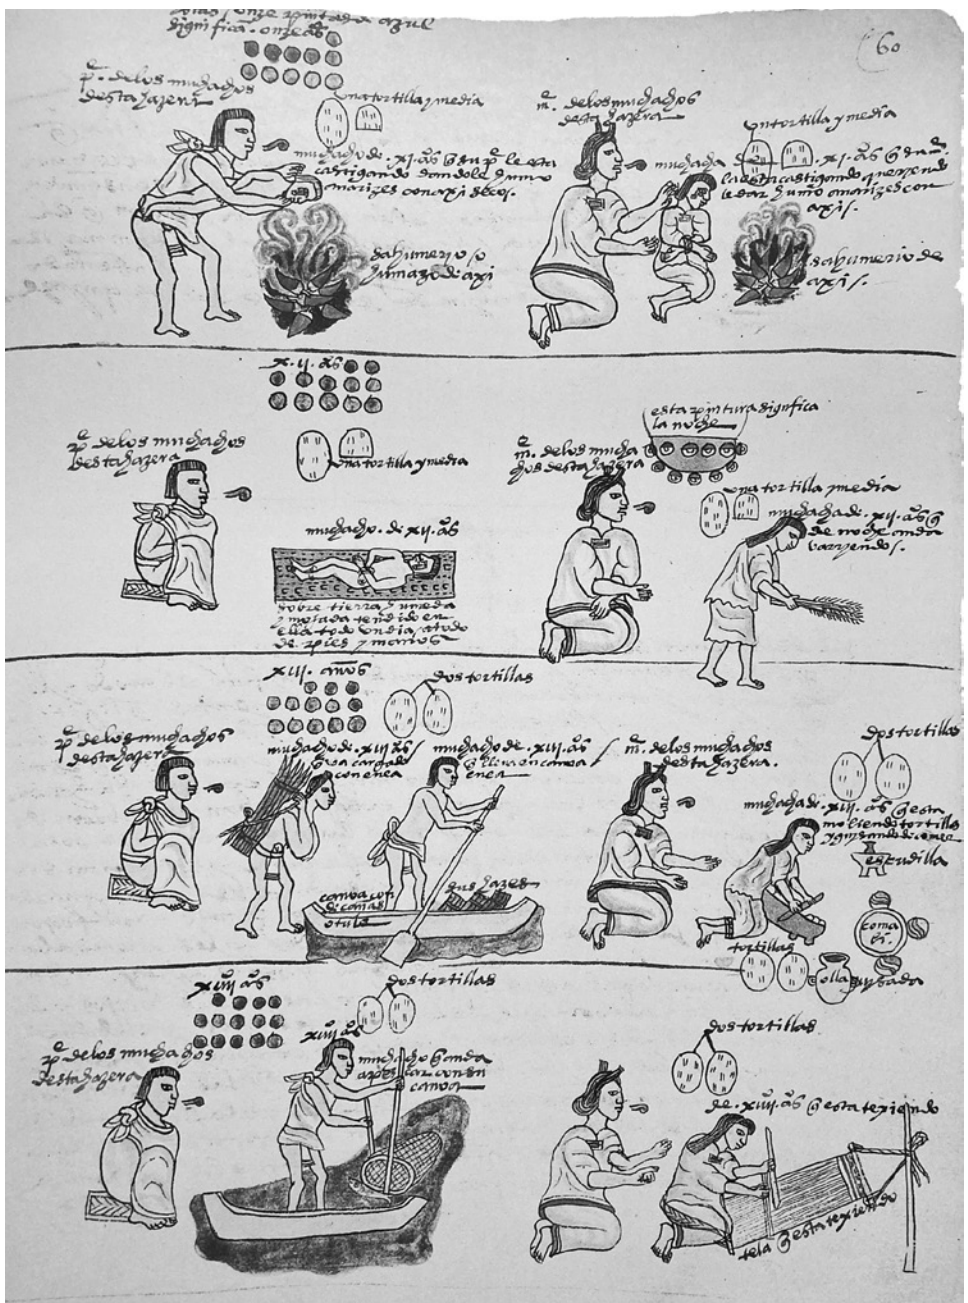 años / onze pintada azul
significā. onze aōs
60
pe. de los muchachos
desta hazera
una tortilla y media
muchacho de .XI. aōs q su pe le esta
castigando dandole humo
a narizes con axi secos.
sahumerio / o
humazo de axi
me. de los muchachos
desta hazera
un tortilla y media
muchacha de .XI. aōs q su me.
la esta castigando queryendo
le dar humo a narizes con
axi /.
sahumerio de
axi /.
x.ii. aōs
pe de los muchachos
desta hazera
una tortilla y media
muchacho. de xii. aōs
sobre tierra humeda
y mojada tendido en
ella todo un dia / atado
de pies y manos
esta pintura significa
la noche
me. de los mucha
chos desta hazera
una tortilla y media
muchacha de .xii. aōs q
de noche anda
varryendo /.
xiii. años
dos tortillas
pe de los muchachos
desta hazera
muchacho de .xiii aōs /
q va cargado
con enea
muchacho de .xiii. aōs /
q lleva en canoa
enea
canoa con
sus cañas
o tule
sus hazes
me. de los muchachos
desta hazera.
dos tortillas
muchacha de .xiii. aōs q esta
moliendo tortillas
y guisando de comer
escudilla
coma
li.
tortillas
olla guisada
xiiii aōs
dos tortillas
pe de los muchachos
desta hazera
xiiii aōs
muchacho q anda
a pescar con su
canoa
dos tortillas
de .xiiii. aōs q esta texiendo
tela q esta texiendo